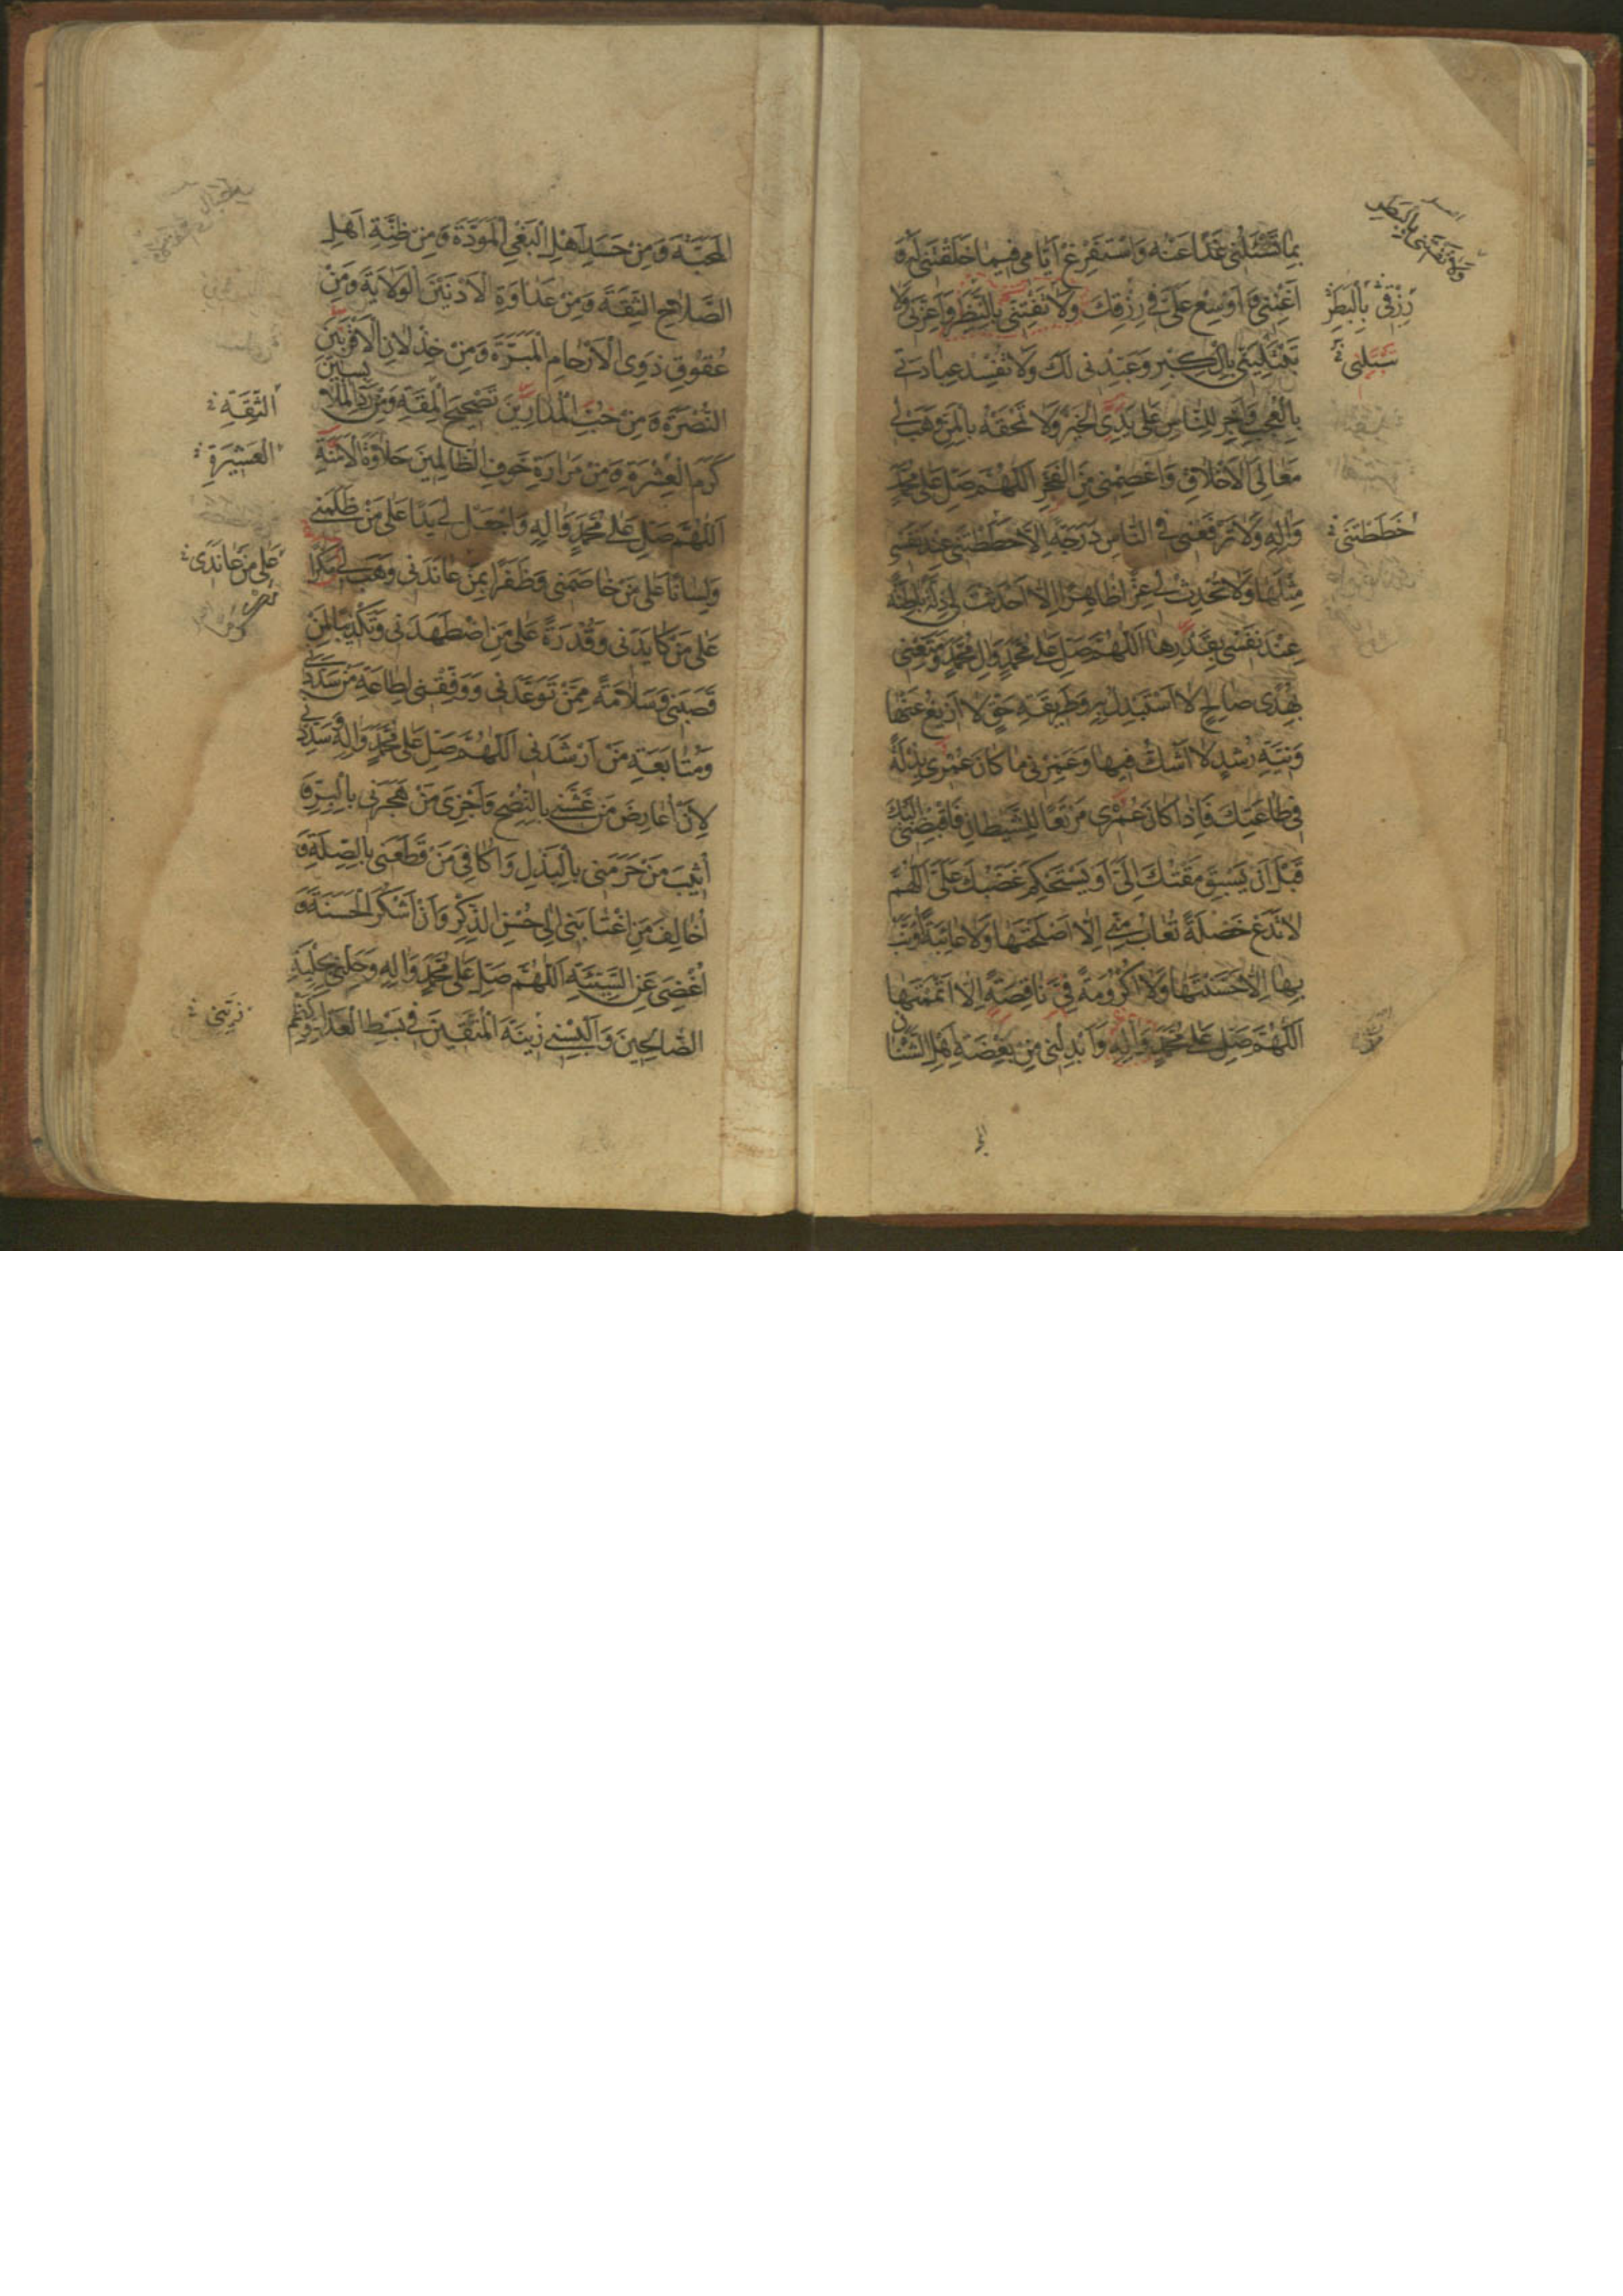 بِما تَسْئَلُنى غَدًا عَنْه وَاسْتَفْرِغْ اَيّامى فيما خَلَقْتَنى لَهُ وَ
اَغْنِنى وَ اَوْسِعْ عَلَىَّ فى رِزْقِكَ وَلا تَفْتِنّى بِالنَّظَرِ وَاَعِزَّنى وَلا
تَبْتَلِيَنّى بِالْكِبْرِ وَعَبِّدْنى لَكَ وَلا تُفْسِدْ عِبادَتى
بِالْعُجْبِ وَاَجْرِ لِلنّاسِ عَلى يَدَىَّ الْخَيْرَ وَلا تَمْحَقْهُ بِالْمَنِّ وَهَبْ لى
مَعالِىَ الْاَخْلاقِ وَاعْصِمْنى مِنَ الْفَخْرِ اَللّهُمَّ صَلِّ عَلى مُحَمَّدٍ
وَالِهِ وَلا تَرْفَعْنى فى النّاسِ دَرَجَةً اِلّا حَطَطْتَنى عِنْدَ نَفْسى
مِثْلَها وَلا تُحْدِثْ لى عِزًّا ظاهِرًا اِلّا اَحْدَثْتَ لى ذِلَّةً باطِنَةً
عِنْدَ نَفْسى بِقَدَرِها اَللّهُمَّ صَلِّ عَلى مُحَمَّدٍ وَالِ مُحَمَّدٍ وَمَتِّعْنى
بِهُدًى صالِحٍ لا اَسْتَبْدِلُ بِهِ وَطَريقَةِ حَقٍّ لا اَزيغُ عَنْها
وَنِيَّةِ رُشْدٍ لا اَشُكُّ فيها وَعَمِّرْنى ما كانَ عُمْرى بِذْلَةً
فى طاعَتِكَ فَاِذا كانَ عُمْرى مَرْتَعًا لِلشَّيْطانِ فَاقْبِضْنى اِلَيْكَ
قَبْلَ اَنْ يَسْبِقَ مَقْتُكَ اِلَىَّ اَوْ يَسْتَحْكِمَ غَضَبُكَ عَلَىَّ اَللّهُمَّ
لا تَدَعْ خَصْلَةً تُعابُ مِنّى اِلّا اَصْلَحْتَها وَلا عائِبَةً اُؤَنَّبُ
بِها اِلّا حَسَّنْتَها وَلا اُكْرُومَةً فِىَّ ناقِصَةً اِلّا اَتْمَمْتَها
اَللّهُمَّ صَلِّ عَلى مُحَمَّدٍ وَالِهِ وَاَبْدِلْنى مِنْ بِغْضَةِ اَهْلِ الشَّنَآنِ
وَلا تَفْتِنّى بِالْبَطَرِ
رِزْقِى بِالْبَطَرِ
حَطَطْتَنى
الْمَحَبَّةَ وَمِنْ حَسَدِ اَهْلِ الْبَغْىِ الْمَوَدَّةَ وَمِنْ ظِنَّةِ اَهْلِ
الصَّلاحِ الثِّقَةَ وَمِنْ عَداوَةِ الْاَدْنَيْنَ الْوَلايَةَ وَمِنْ
عُقُوقِ ذَوِى الْاَرْحامِ الْمَبَرَّةَ وَمِنْ خِذْلانِ الْاَقْرَبينَ
النُّصْرَةَ وَ مِنْ حُبِّ الْمُدارينَ تَصْحيحَ الْمِقَةِ وَمِنْ رَدِّ الْمُلابِسينَ
كَرَمَ الْعِشْرَةِ وَمِنْ مَرارَةِ خَوْفِ الظّالِمينَ حَلاوَةَ الْاَمَنَةِ
اَللّهُمَّ صَلِّ عَلى مُحَمَّدٍ وَالِهِ وَاجْعَلْ لى يَدًا عَلى مَنْ ظَلَمَنى
وَلِسانًا عَلى مَنْ خاصَمَنى وَظَفَرًا بِمَنْ عانَدَنى وَهَبْ لى مَكْرًا
عَلى مَنْ كايَدَنى وَقُدْرَةً عَلى مَنِ اضْطَهَدَنى وَتَكْذيبًا لِمَنْ
قَصَبَنى وَسَلامَةً مِمَّنْ تَوَعَّدَنى وَوَفِّقْنى لِطاعَةِ مَنْ سَدَّدَنى
وَمُتابَعَةِ مَنْ اَرْشَدَنى اَللّهُمَّ صَلِّ عَلى مُحَمَّدٍ وَالِهِ وَسَدِّدْنى
لِاَنْ اُعارِضَ مَنْ غَشَّنى بِالنُّصْحِ وَاَجْزِىَ مَنْ هَجَرَنى بِالْبِرِّ وَ
اُثيبَ مَنْ حَرَمَنى بِالْبَذْلِ وَاُكافِىَ مَنْ قَطَعَنى بِالصِّلَةِ وَ
اُخالِفَ مَنِ اغْتابَنى اِلى حُسْنِ الذِّكْرِ وَاَنْ اَشْكُرَ الْحَسَنَةَ وَ
اُغْضِىَ عَنِ السَّيِّئَةِ اَللّهُمَّ صَلِّ عَلى مُحَمَّدٍ وَالِهِ وَحَلِّنى بِحِلْيَةِ
الصّالِحينَ وَاَلْبِسْنى زينَةَ الْمُتَّقينَ فى بَسْطِ الْعَدْلِ وَكَظْمِ
الثِّقَةِ
الْعَشيرَةِ
عَلى مَنْ عانَدَنى